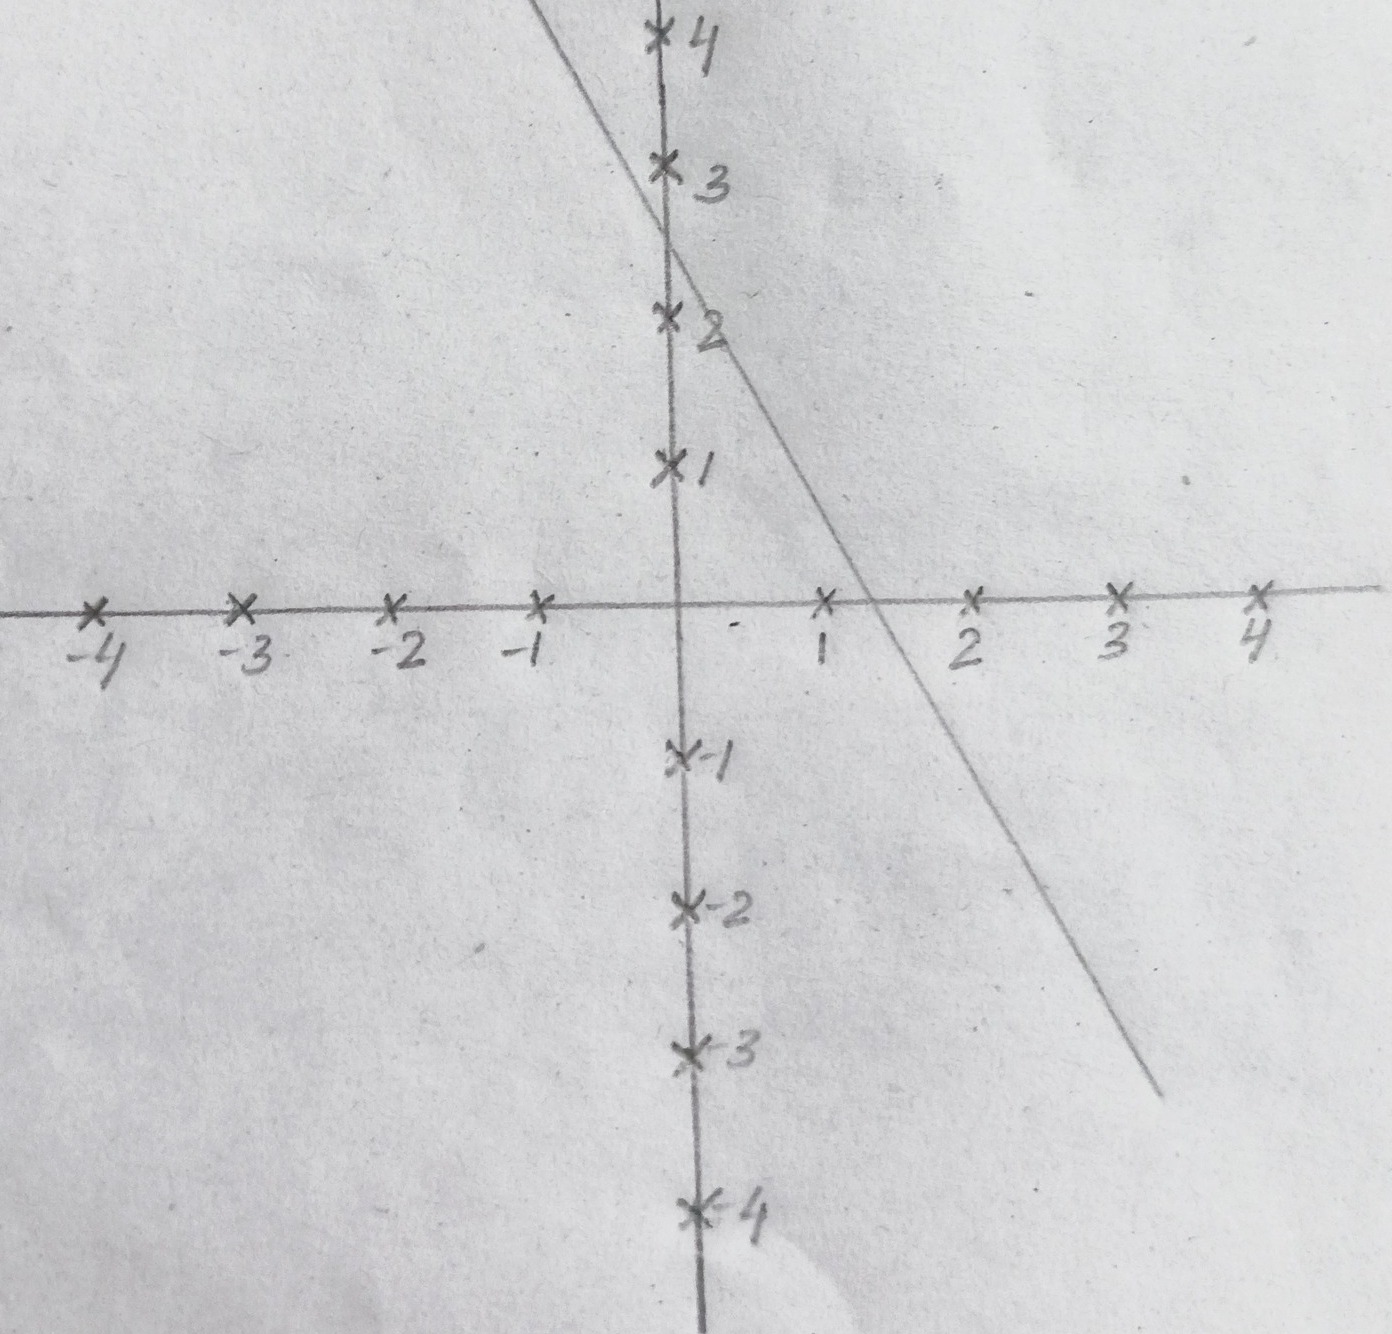 4
3
2
1
-4 -3 -2 -1 1 2 3 4
-1
-2
-3
-4